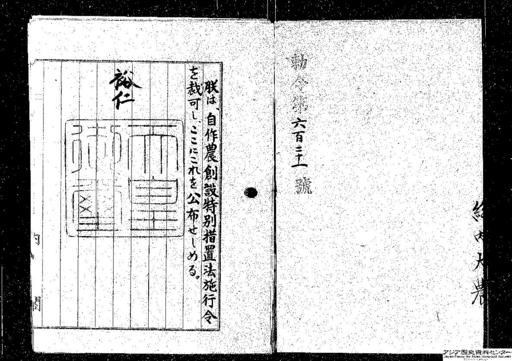 勅令第六百二十一號
朕は、自作農創設特別措置法施行令
を裁可し、ここにこれを公布せしめる。
裕仁
天皇御璽
内閣
アジア歴史資料センター